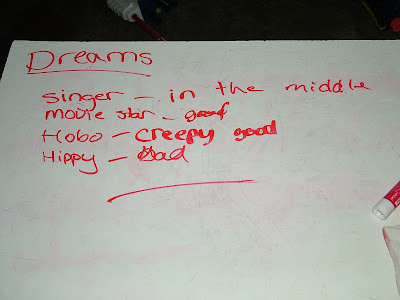 Dreams
singer - in the middle
movie star - good
Hobo - creepy good
Hippy - Bad